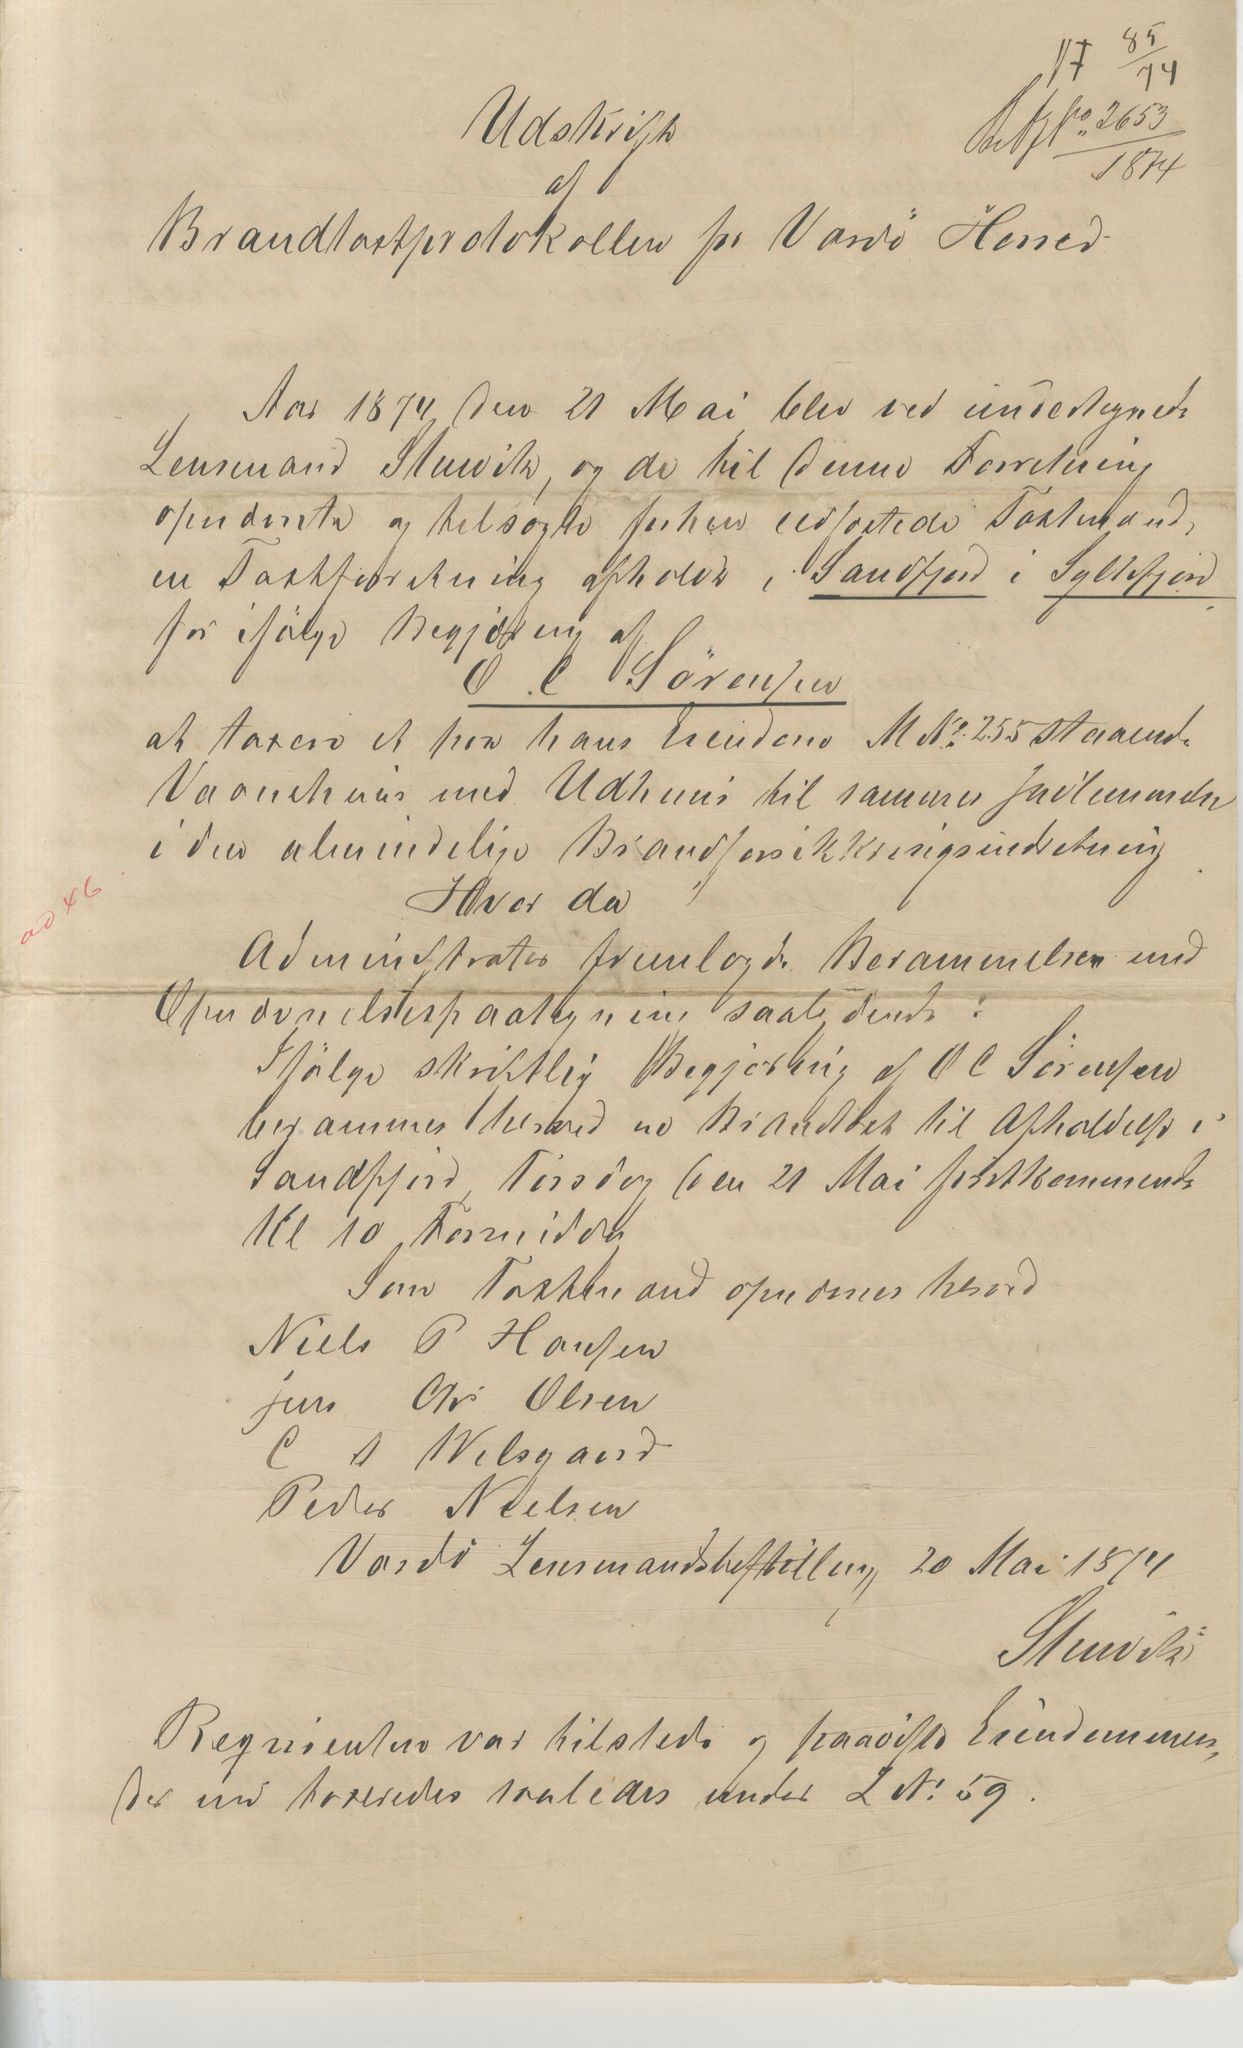 17 85/74
No 2653
1874
Udskrift
af
Brandtaxtprotokollen for Vardö Herred
Aar 1874 den 21 Mai blev ved undertegnede
Lensmand Stuwitz, og de til denne Forretning
opnævnte og tilsagte forhen edfæstede Taxtmænd,
en Taxtforretning afholdt i Sandfjord i Syltefjord
for ifölge Begjæring af
O C Sörensen
at taxere et paa hans Eiendom M No 255 staaende
Vaaningshuus med Udhuus til samme Indlemmelse
i den almindelige Brandforsikkringsindretning
Hvor da
ad 46
Administrator fremlagde Berammelsen med
Opnævnelsespaategning saalydende:
Ifölge skriftlig Begjæring af O C Sörensen
berammes herved en Brandtaxt til Afholdelse i
Sandfjord, Torsdag den 21 Mai förstkommende
Kl 10 Formiddag
Som Taxtmænd opnævnes herved
Niels P Hansen
Jens Chr Olsen
C A Welsgaard
Peder Nielsen
Vardö Lensmandsbestilling 20 Mai 1874
Stuwitz
Reqvirenten var tilstede og paaviste Eiendommen,
der nu taxeredes saaledes under L No 59.